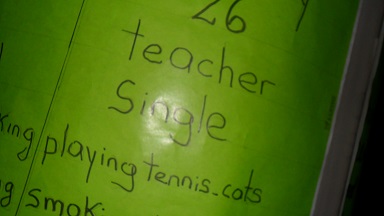 26 y
teacher
Single
king playing tennis-cats
g smoki